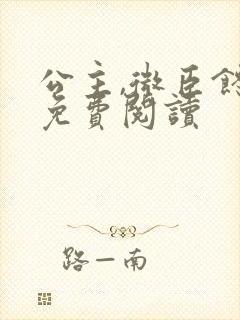 公主,微臣館
免費閱讀
路一南